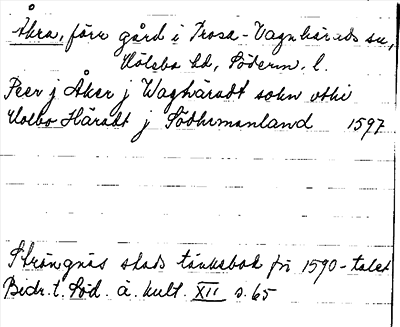 Åkra, förr gård i Trosa-Vagnhärads sn,
Hölebo hd, Söderm. l.
Peer j Åker j Waghäradt sokn vthi
Holbo Häradt j Södhrmanland 1597
Strängnäs stads tänkebok fr 1590-talet
Bidr. t. Söd. ä. kult. XII s. 65